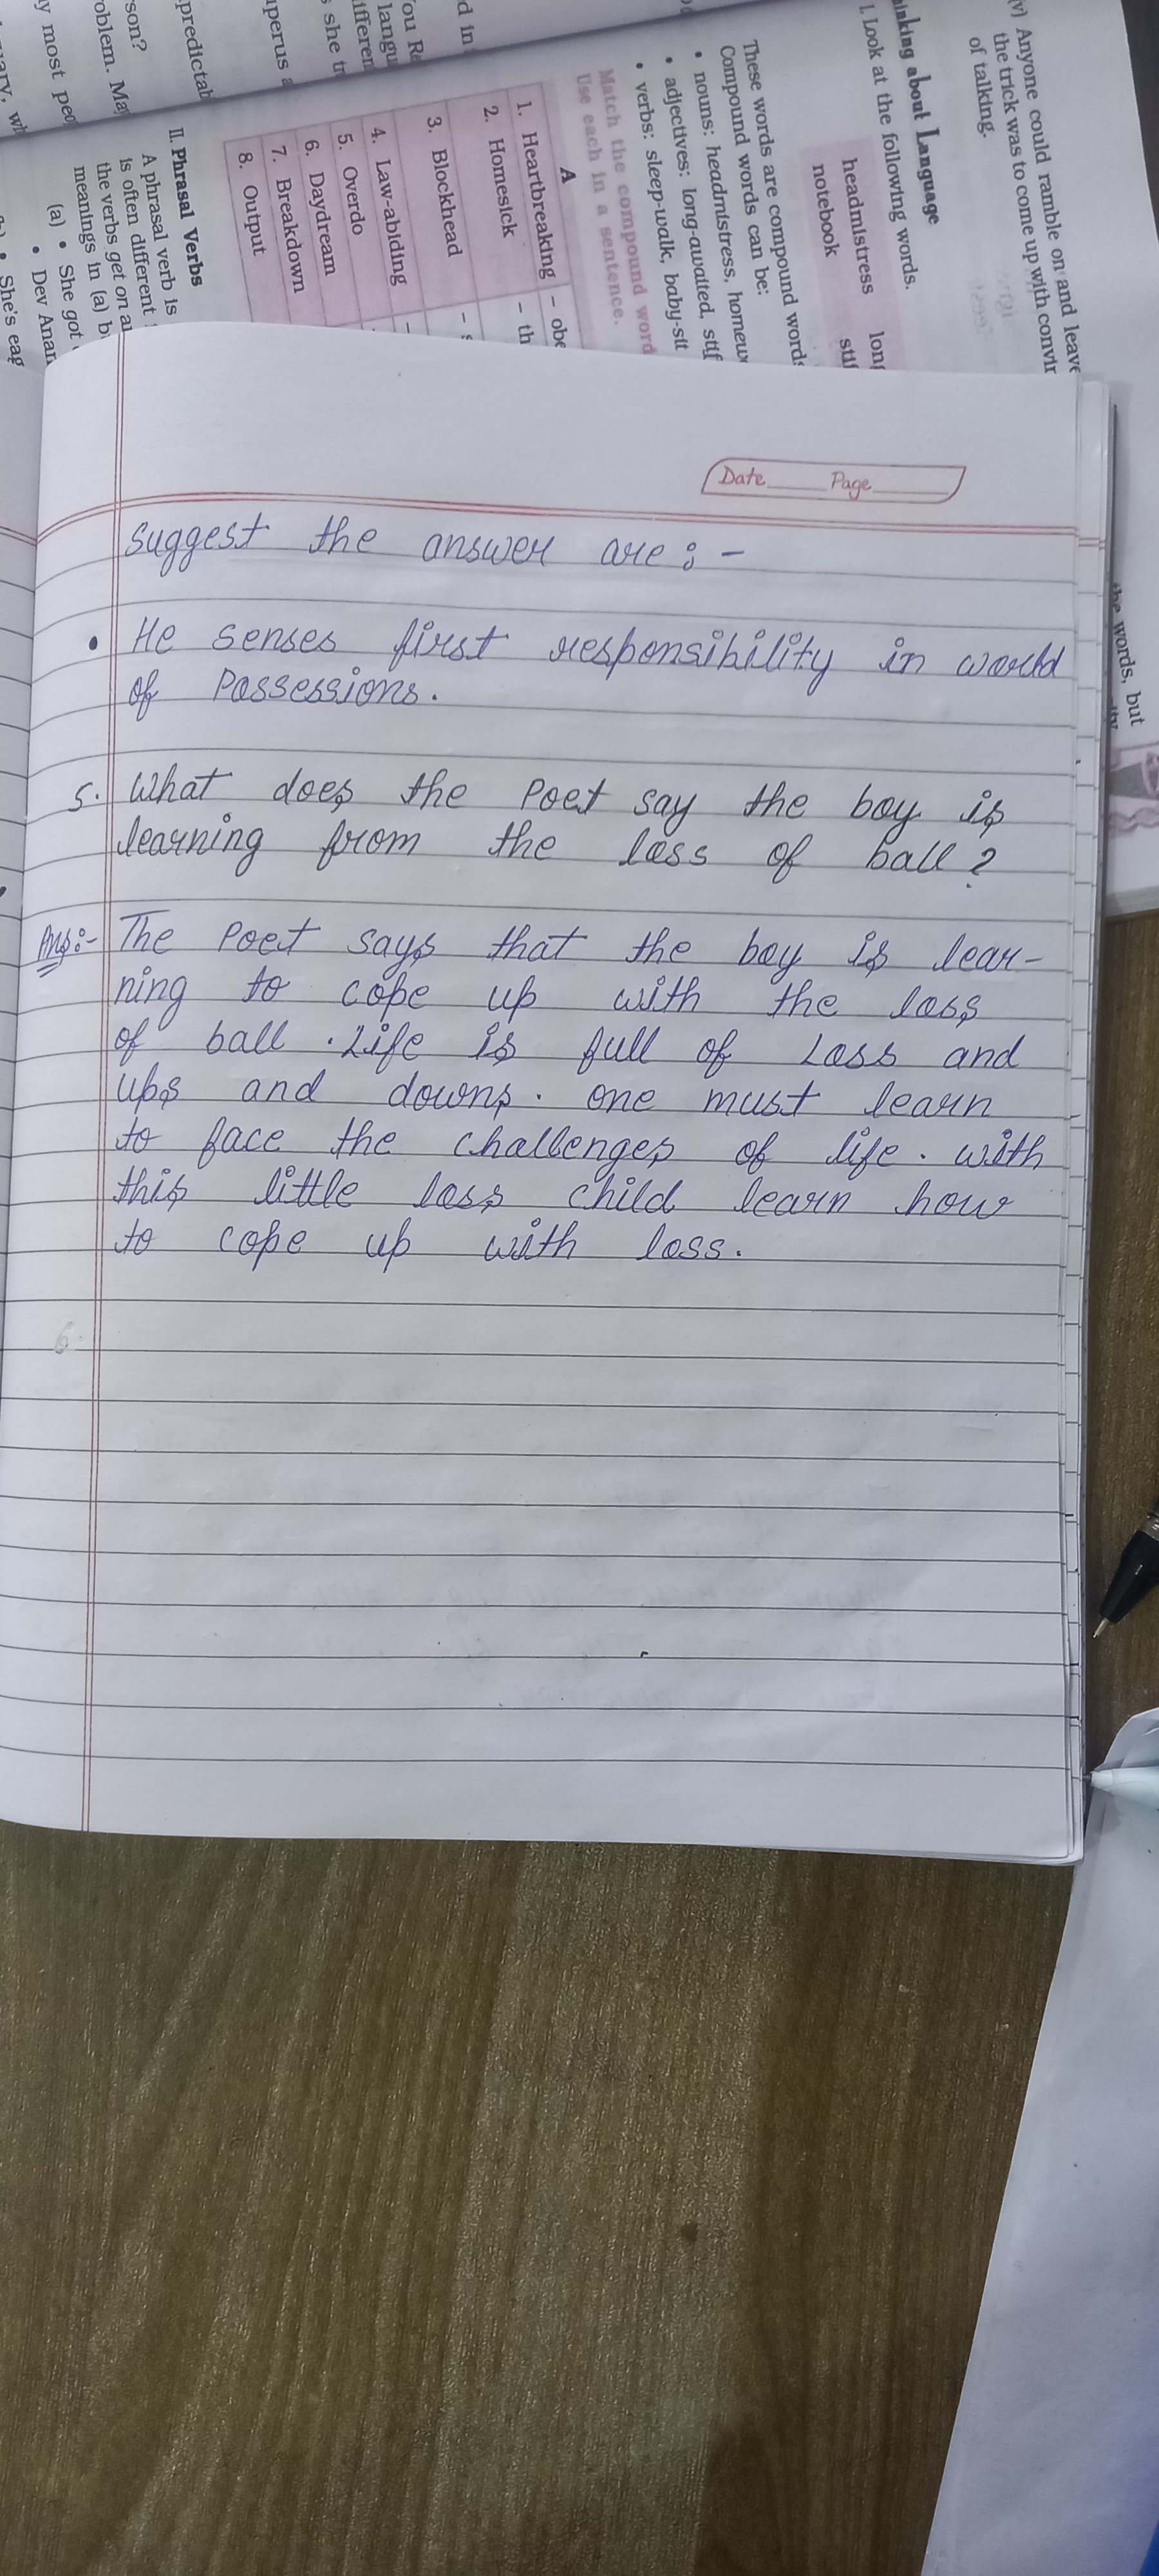 (v) Anyone could ramble on and leave
the trick was to come up with
of talking.
about Language
I. Look at the following words.
headmistress
notebook
These words are compound words
Compound words can be:
• nouns: headmistress,
• adjectives: long-awaited,
• verbs: sleep-walk,
Match the compound word
Use each in a sentence.
A
1. Heartbreaking –
2. Homesick –
3. Blockhead –
4. Law-abiding –
5. Overdo
6. Daydream
7. Breakdown
8. Output
II. Phrasal Verbs
A phrasal verb is
is often different
the verbs get on
meanings in (a)
(a) • She got
• Dev
• She's
the words, but
Date Page
suggest the answer are : -
• He senses first responsibility in world
of Possessions.
5. What does the Poet say the boy is
learning from the loss of ball ?
Ans:- The Poet says that the boy is lear-
ning to cope up with the loss
of ball . Life is full of Loss and
ups and downs . one must learn
to face the challenges of life . with
this little loss child learn how
to cope up with loss .
6.